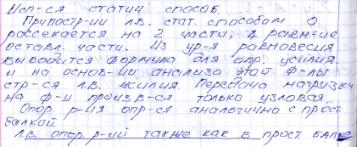 Исп-ся статич способ.
При постр-ии л.в. стат. способом Ф.
рассекается на 2 части, равн-ие
оставл. части. Из ур-я равновесия
выводится формула для опр. усилия.
и на основ-ии анализа этой ф-лы
стр-ся л.в. усилия. Передача нагрузки
на Ф-и произв-ся только узловая.
Опор р-ия опр-ся аналогично с прост
балкой.
Л.в. опор р-ий также как в прост балке